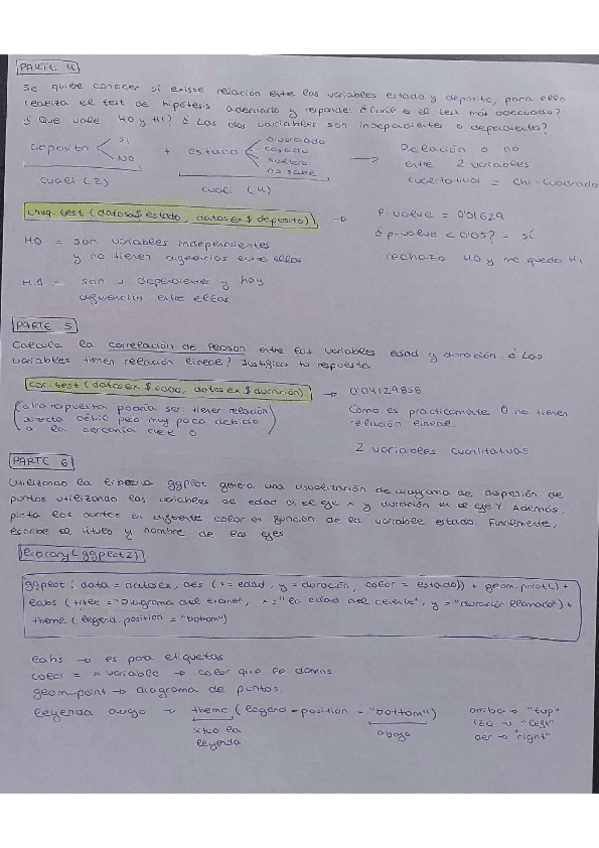 PARTE 4
Se quiere conocer si existe relación entre las variables estado y deposito, para ello
realiza el test de hipótesis adecuado y responde ¿Cuál es el test más adecuado?
¿Que vale H0 y H1? ¿Las dos variables son independientes o dependientes?
deposito < si no + estado < divorciado casado soltero no sabe → Relación o no
entre 2 variables
cuali (2) cuali (4) cualitativas = Chi-Cuadrado
chisq.test (datosex$estado, datosex$deposito) → p-value = 0'01629
H0 = son variables independientes ¿p-value < 0'05? = sí
y no tienen diferencias entre ellas rechazo H0 y me quedo H1
H1 = son v dependientes y hay
diferencias entre ellas
PARTE 5
Calcula la correlación de Pearson entre las variables edad y duración. ¿Las
variables tienen relación lineal? Justifica tu respuesta
cor.test (datosex $ edad, datosex $ duración) → 0'04129858
(otra respuesta podría ser: tienen relación Como es practicamente 0 no tienen
directa débil pero muy poca debido relación lineal.
a la cercanía del 0)
2 variables cuantitativas
PARTE 6
Utilizando la librería ggplot genera una visualización de diagrama de dispersión de
puntos utilizando las variables de edad en el eje x y duración en el eje Y. Además,
pinta los puntos en diferente color en función de la variable estado. Finalmente,
escribe el título y nombre de los ejes
library(ggplot2)
ggplot (data = datosex, aes (x = edad, y = duración, color = estado)) + geom_point() +
labs (title = "Diagrama del , x = "la edad del cliente", y = "duración llamada") +
theme (legend.position = "bottom")
labs → es para etiquetas
color = x variable → color que le damos
geom-point → diagrama de puntos.
leyenda abajo → theme (legend-position = "bottom") arriba → "top"
sitúo la abajo izq → "left"
leyenda der → "right"